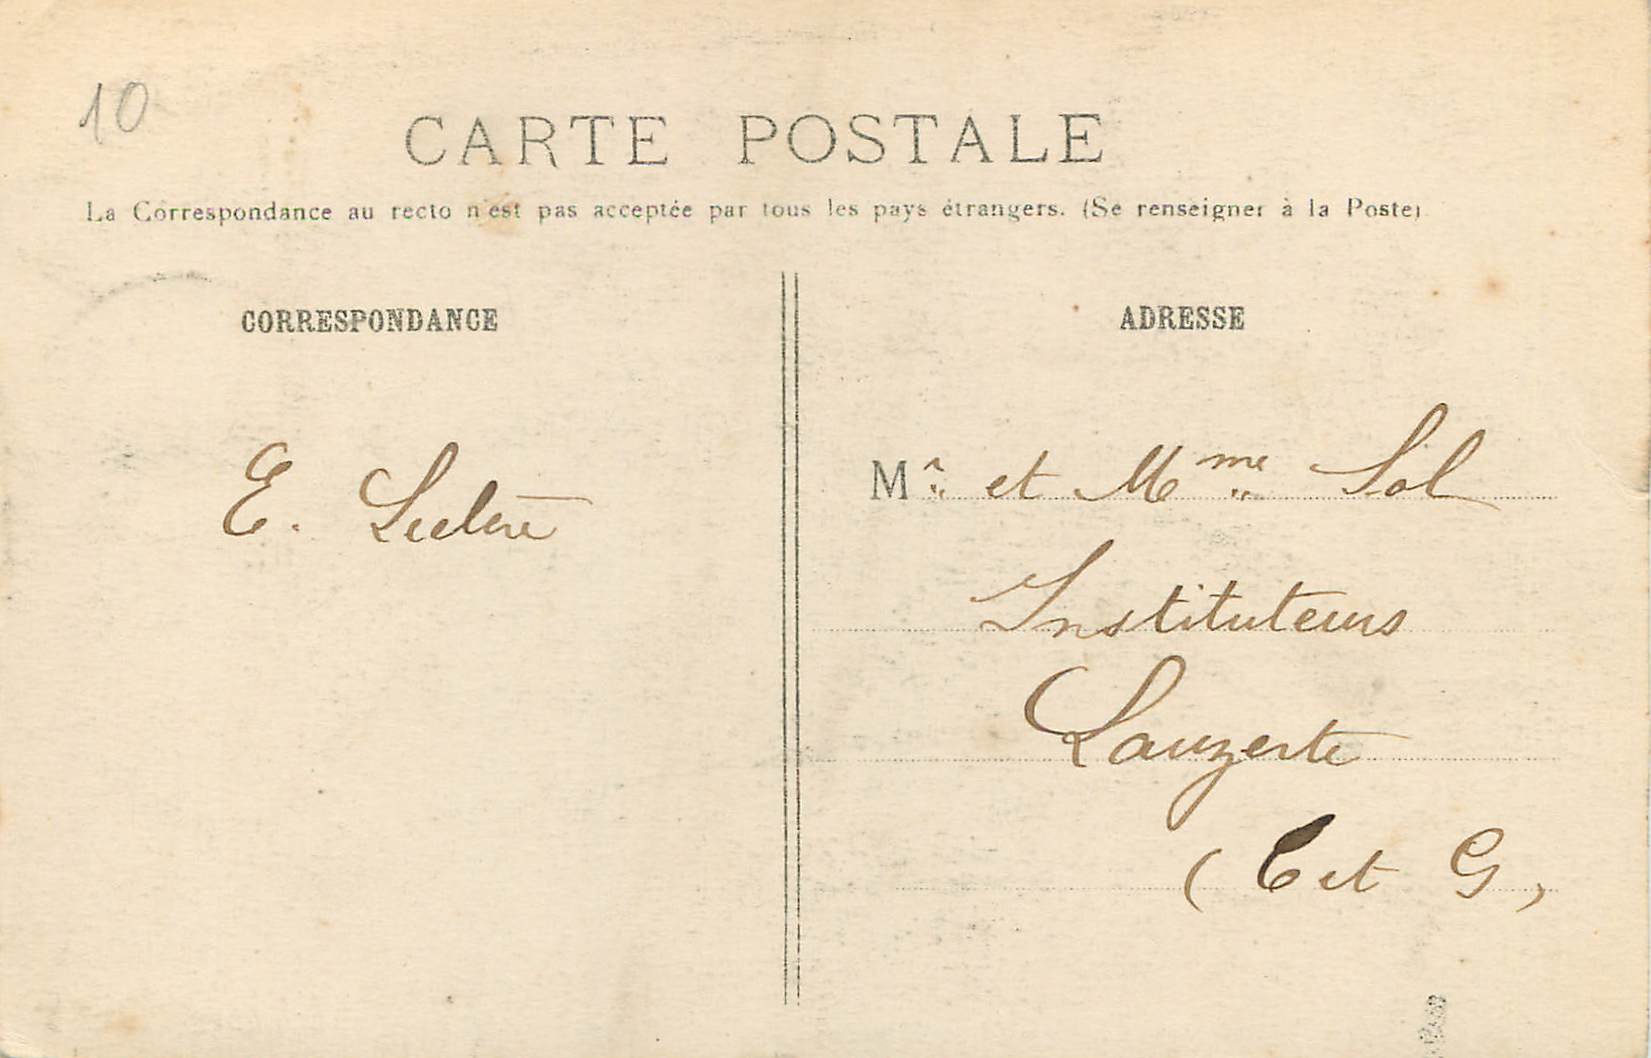 10
CARTE POSTALE
La Correspondance au recto n'est pas acceptée par tous les pays étrangers. (Se renseigner à la Poste)
CORRESPONDANCE
E. Leclere
ADRESSE
Mr. et Mme Sol
Instituteurs
Lauzerte
(T et G)